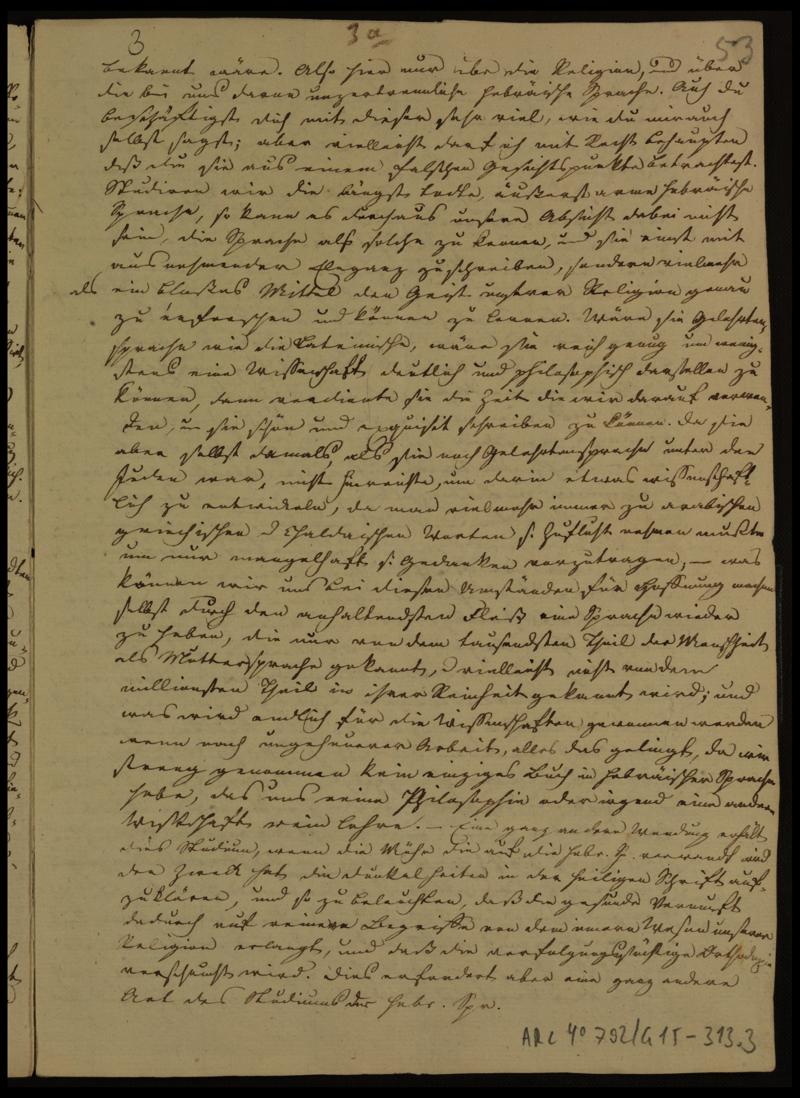 3 3a 53
bekannt wäre. Also hier nur über die Religion, und über
die bei uns davon unzertrennliche hebräische Sprache. Auch du
beschäftigst dich mit dieser sehr viel, wie du mir auch
selbst sagst; aber vielleicht darf ich mit Recht behaupten
daß du sie aus einem falschen Gesichtspunkte betrachtest.
Studiren wir die längst todte, äußerst arme hebräische
Sprache, so kann es durchaus unsere Absicht dabei nicht
sein, die Sprache als solche zu kennen, und sie einst mit
ausnehmender Eleganz zu schreiben, sondern vielmehr
als ein bloßes Mittel den Geist unsrer Religion genau
zu erforschen und können zu lernen. Wäre sie Gelehrten-
sprache wie die Lateinische, wäre sie reich genug um wenig-
stens eine Wissenschaft deutlich und philosophisch darstellen zu
können, dann verdiente sie die Zeit die wir darauf verwen-
den, um sie schön und exquisit schreiben zu können. Da sie
aber selbst damals, als sie noch Gelehrtensprache unter den
Juden war, nicht hinreichte, um darin etwas wissenschaft-
lich zu entwickeln, da man vielmehr immer zu arabischen
griechischen u chaldäischen Worten s. Zuflucht nehmen mußte
um nur mangelhaft s. Gedanken vorzutragen, – was
können wir uns bei diesen Umständen für Hoffnung machen
selbst durch den anhaltendsten Fleiß eine Sprache wieder
zu heben, die nur von dem tausendsten Theil der Menschheit
als Muttersprache gekannt, u vielleicht nicht von dem
millionsten Theil in ihrer Reinheit gekannt wird; und
was wird endlich für die Wissenschaften gewonnen werden
wenn nach ungeheurer Arbeit, alles das gelingt, da wir
streng genommen kein einziges Buch in hebräischer Sprache
habe, das uns reine Philosophie oder irgend eine andere
Wissenschaft rein lehre. – Eine ganz andere Wendung erhält
dies Studium, wenn die Mühe die auf die hebr. Sp. verwandt wird
den Zweck hat die Dunkelheiten in der heiligen Schrift auf-
zuklären, und so zu beleuchten, daß die gesunde Vernunft
dadurch auf reinere Begriffe von dem innern Wesen unserer
Religion erlangt, und daß die verfolgungssüchtige Orthodoxie
verscheucht wird. Dies erfordert aber eine ganz andere
Art des Studiums der hebr. Spr.
ARC 4° 792/G15-313.3